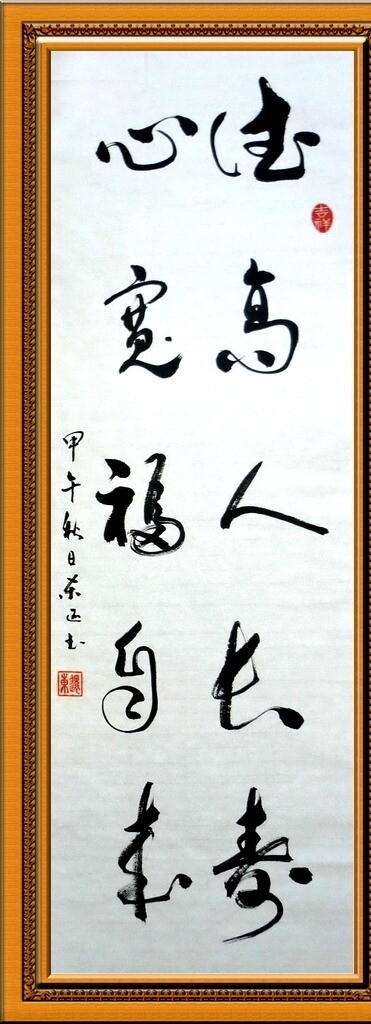 德高人长寿
心宽福自来
甲午秋日东迅书
吉祥